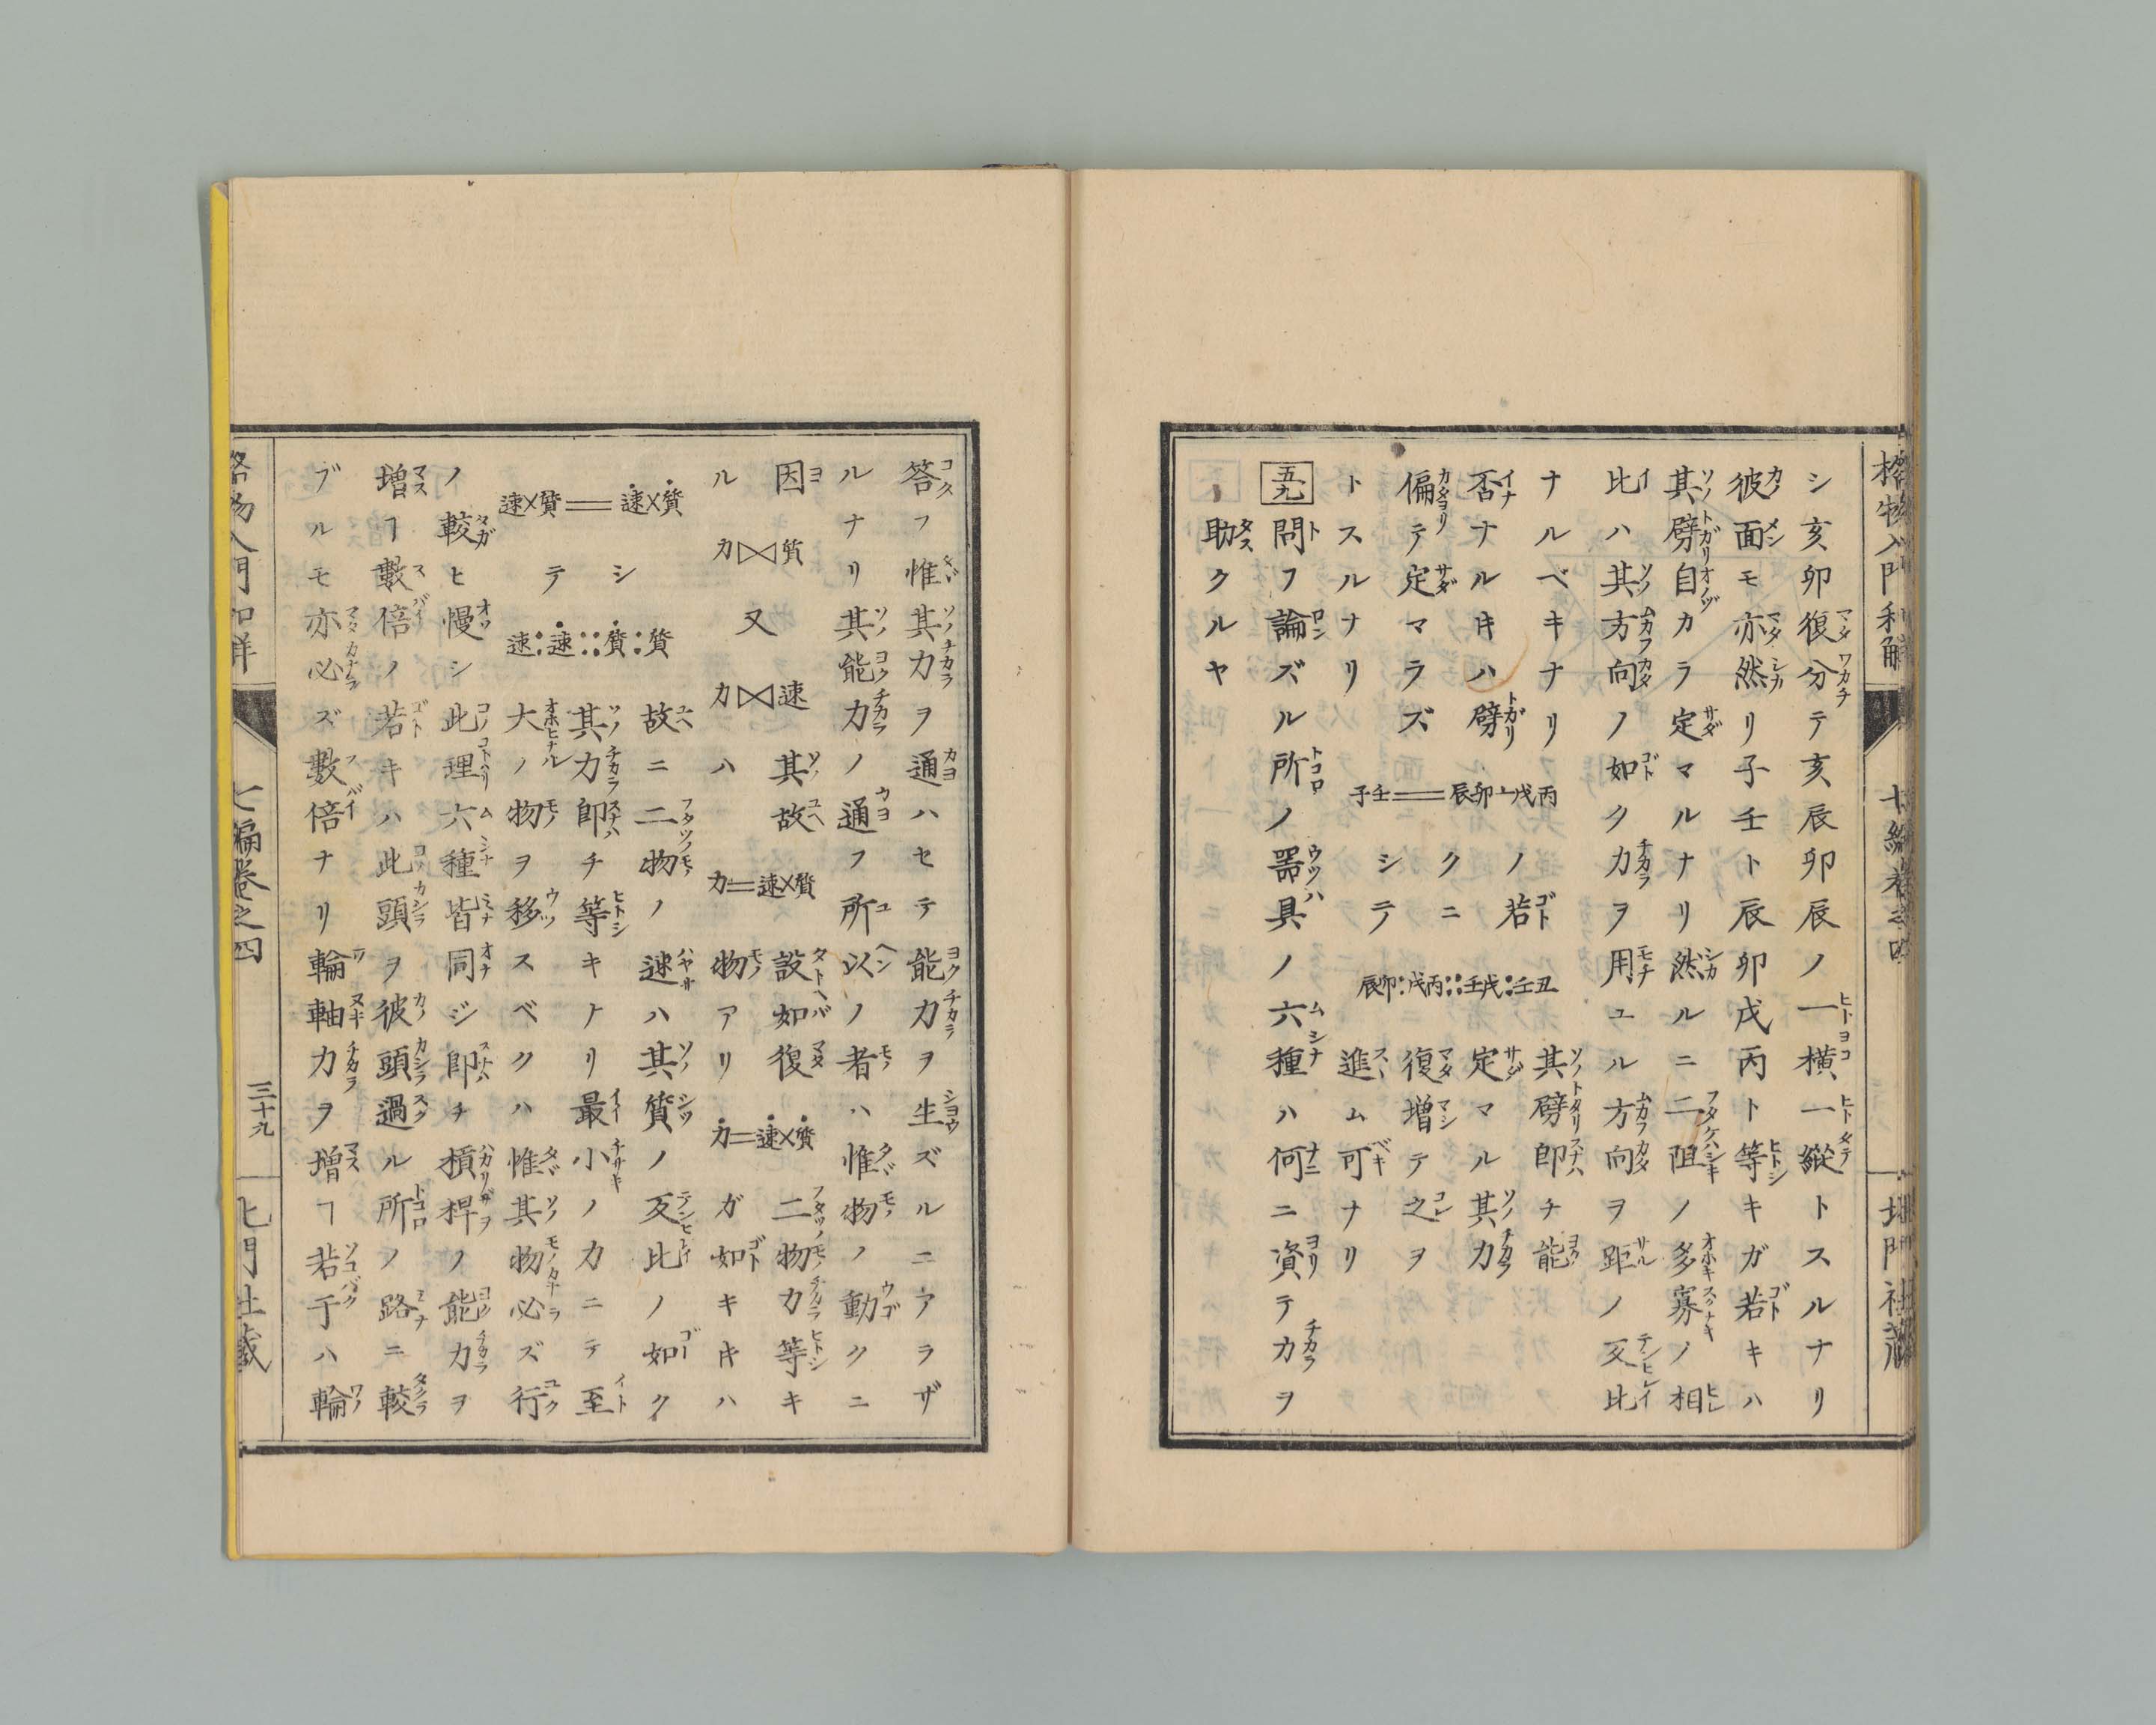 格物入門和解 七編卷之四 北門社藏
シ亥卯復分テ亥辰卯辰ノ一横一縱トスルナリ
彼面モ亦然リ子壬ト辰卯戊丙ト等キガ若キハ
其劈自カラ定マルナリ然ルニ二阻ノ多寡ノ相
比ハ其方向ノ如ク力ヲ用ユル方向ヲ距ノ反比
ナルベキナリ
否ナルキハ劈
偏テ定マラズ
トスルナリ
子壬＝辰卯⊥戊丙
ノ若
クニ
シテ
辰卯:戊丙::壬戊:壬丑
其劈即チ能
定マル其力
復增テ之ヲ
進ム可ナリ
五九 問フ論ズル所ノ器具ノ六種ハ何ニ資テ力ヲ
助クルヤ
答フ惟其力ヲ通ハセテ能力ヲ生ズルニアラザ
ルナリ其能力ノ通フ所以ノ者ハ惟物ノ動クニ
因
ル
力⋈質
又
力⋈速
其故
ハ
力＝速X質
設如復
物アリ
力＝速X質
二物力等キ
ガ如キキハ
速X質＝速X質
シ
テ
速:速::質:質
故ニ二物ノ速ハ其質ノ反比ノ如ク
其力即チ等キナリ最小ノ力ニテ至
大ノ物ヲ移スベクハ惟其物必ズ行
ノ較ヒ慢シ此理六種皆同ジ即チ槓桿ノ能力ヲ
增ヿ數倍ノ若キハ此頭ヲ彼頭過ル所ノ路ニ較
ブルモ亦必ズ數倍ナリ輪軸力ヲ增ヿ若干ハ輪
格物入門和解 七編卷之四 三十九 北門社藏